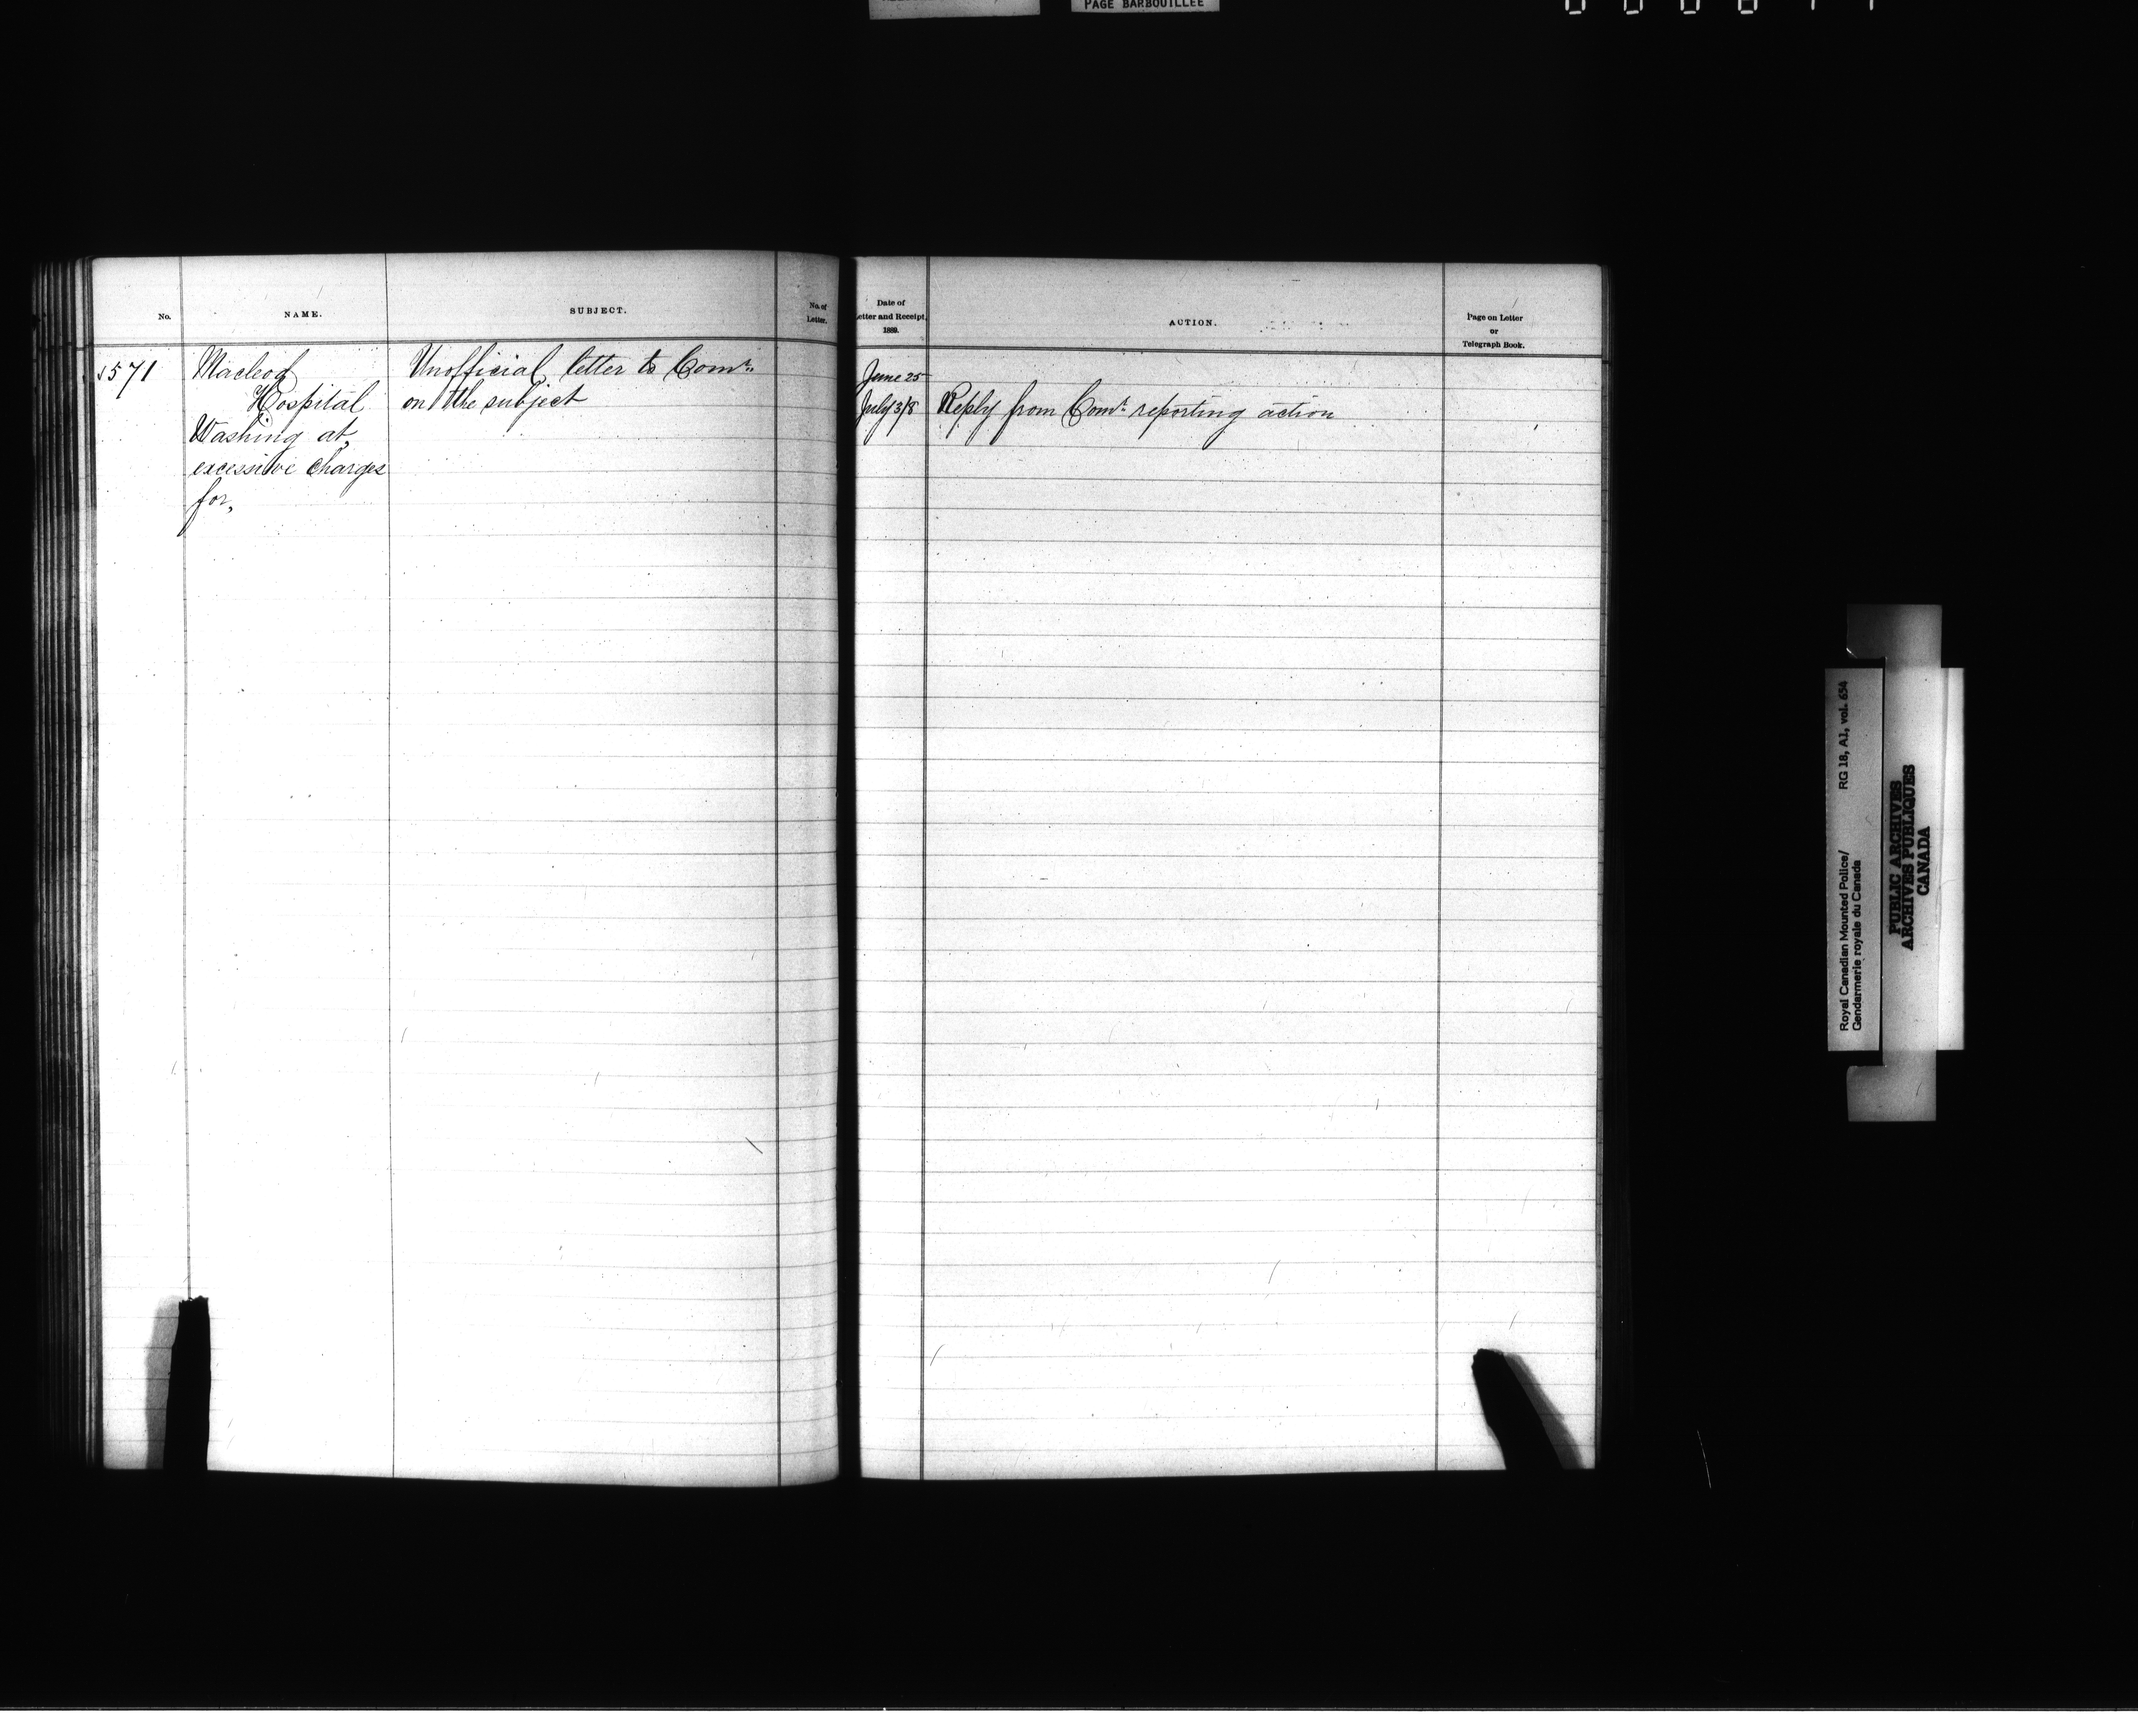 PAGE BARBOUILLEE
No.
NAME.
SUBJECT.
No. of
Letter.
Date of
Letter and Receipt,
1889.
ACTION.
Page on Letter
or
Telegraph Book.
571
Macleod
Hospital
Washing at,
excessive charges
for,
Unofficial letter to Comr.
on the subject
June 25
July 3/8
Reply from Comr. reporting action
Royal Canadian Mounted Police/
Gendarmerie royale du Canada
RG 18, A1, vol. 654
PUBLIC ARCHIVES
ARCHIVES PUBLIQUES
CANADA